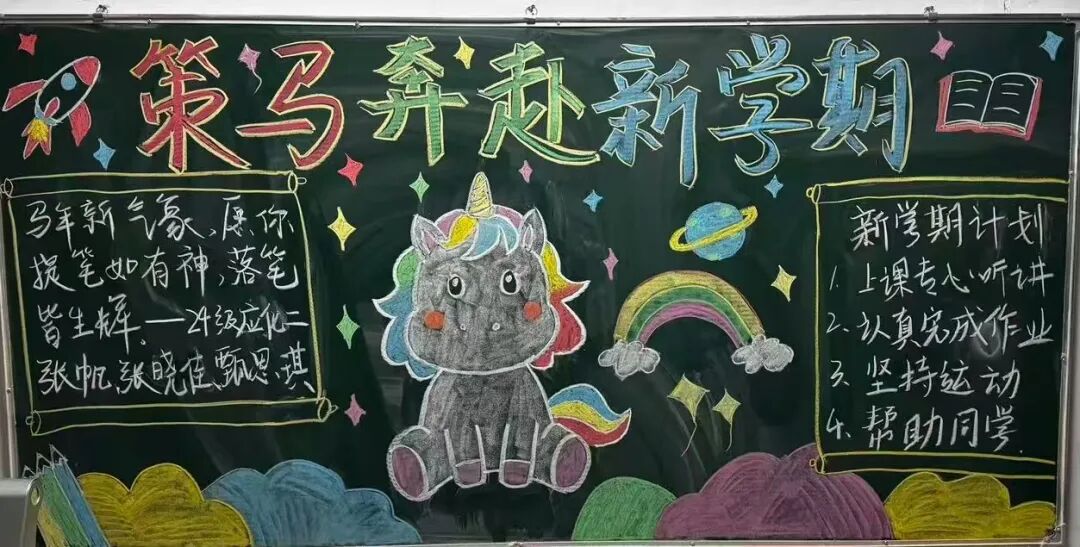 策马奔赴新学期
马年新气象,愿你
提笔如有神,落笔
皆生辉.——24级应化二
张帆,张晓佳,甄思琪
新学期计划
1. 上课专心听讲
2. 认真完成作业
3. 坚持运动
4. 帮助同学.